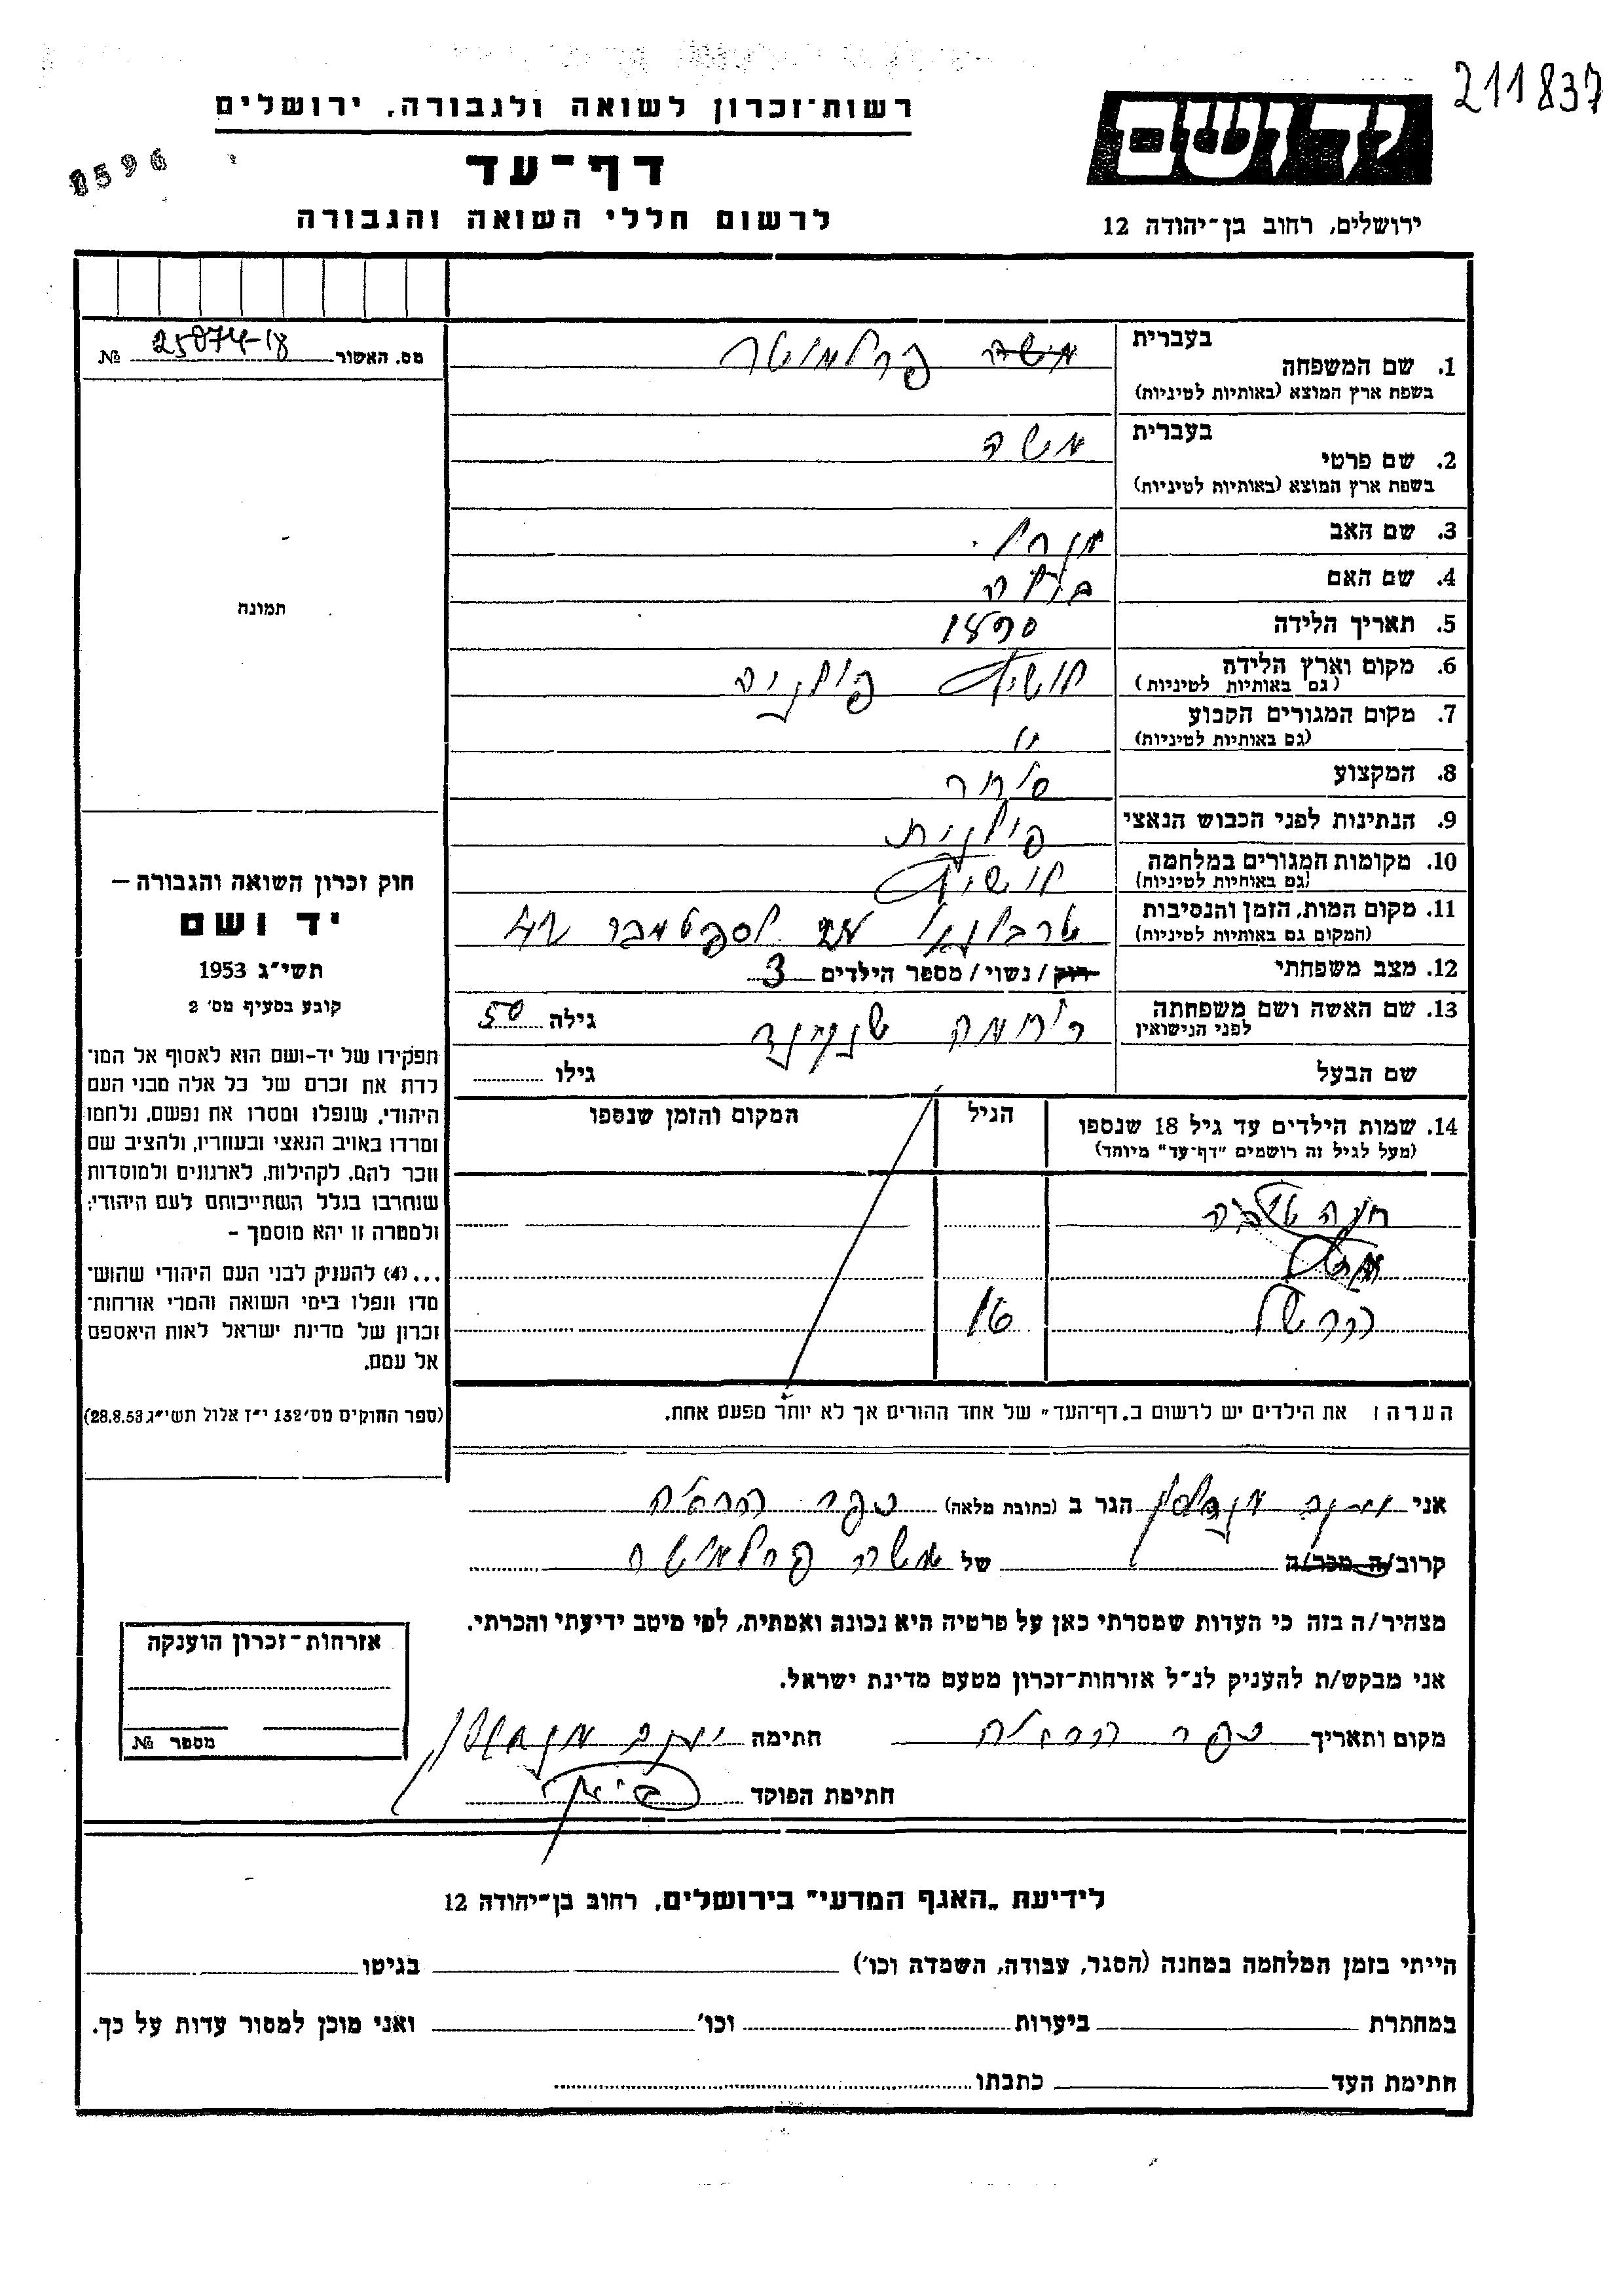 211837
רשות־זכרון לשואה ולגבורה, ירושלים
8596
דף־עד
ידושם
לרשום חללי השואה והגבורה
ירושלים, רחוב בן־יהודה 12
מס. האשור 25874-18 №
בעברית
1. שם המשפחה משה פרלמוטר
בשפת ארץ המוצא (באותיות לטיניות)
בעברית
2. שם פרטי משה
בשפת ארץ המוצא (באותיות לטיניות)
3. שם האב
4. שם האם
5. תאריך הלידה 1890
6. מקום וארץ הלידה פולניה
(גם באותיות לטיניות)
7. מקום המגורים הקבוע
(גם באותיות לטיניות)
8. המקצוע סוחר
9. הנתינות לפני הכבוש הנאצי פולנית
10. מקומות המגורים במלחמה
(גם באותיות לטיניות)
11. מקום המות, הזמן והנסיבות ספטמבר 42
(המקום גם באותיות לטיניות)
12. מצב משפחתי רווק / נשוי / מספר הילדים 3
13. שם האשה ושם משפחתה גילה 50
לפני הנישואין
שם הבעל גילו
תמונה
חוק זכרון השואה והגבורה –
יד ושם
תשי"ג 1953
קובע בסעיף מס' 2
תפקידו של יד-ושם הוא לאסוף אל המו־
לדת את זכרם של כל אלה מבני העם
היהודי, שנפלו ומסרו את נפשם, נלחמו
ומרדו באויב הנאצי ובעוזריו, ולהציב שם
וזכר להם, לקהילות, לארגונים ולמוסדות
שנחרבו בגלל השתייכותם לעם היהודי;
ולמטרה זו יהא מוסמך –
...(4) להעניק לבני העם היהודי שהוש־
מדו ונפלו בימי השואה והמרי אזרחות־
זכרון של מדינת ישראל לאות היאספם
אל עמם.
(ספר החוקים מס' 132 י"ז אלול תשי"ג 28.8.53)
14. שמות הילדים עד גיל 18 שנספו הגיל המקום והזמן שנספו
(מעל לגיל זה רושמים "דף-עד" מיוחד)
חנה
הערה: את הילדים יש לרשום ב"דף-העד" של אחד ההורים אך לא יותר מפעם אחת.
אני הגר ב (כתובת מלאה) כפר הרא"ה
קרוב/ה מכר/ה של משה פרלמוטר
מצהיר/ה בזה כי העדות שמסרתי כאן על פרטיה היא נכונה ואמתית, לפי מיטב ידיעתי והכרתי.
אני מבקש/ת להעניק לנ"ל אזרחות־זכרון מטעם מדינת ישראל.
מקום ותאריך כפר הרא"ה חתימה
חתימת הפוקד
אזרחות־זכרון הוענקה
מספר №
לידיעת "האגף המדעי" בירושלים, רחוב בן־יהודה 12
הייתי בזמן המלחמה במחנה (הסגר, עבודה, השמדה וכו') בגיטו
במחתרת ביערות וכו' ואני מוכן למסור עדות על כך.
חתימת העד כתבתו